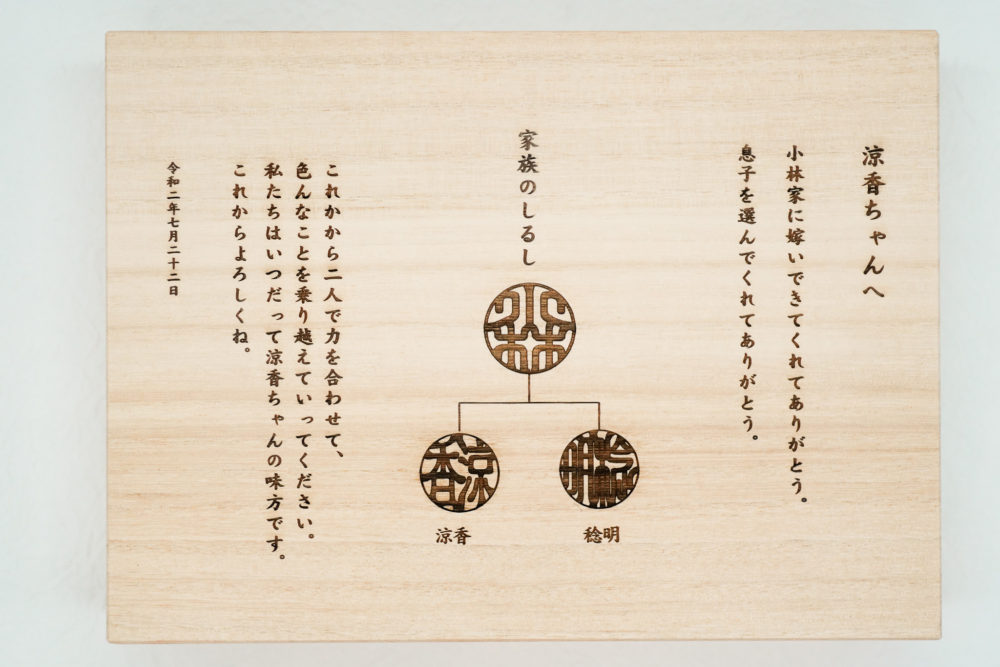 涼香ちゃんへ
小林家に嫁いできてくれてありがとう。
息子を選んでくれてありがとう。
家族のしるし
小林
稔明
涼香
稔明
涼香
これから二人で力を合わせて、
色んなことを乗り越えていってください。
私たちはいつだって涼香ちゃんの味方です。
これからよろしくね。
令和二年七月二十二日